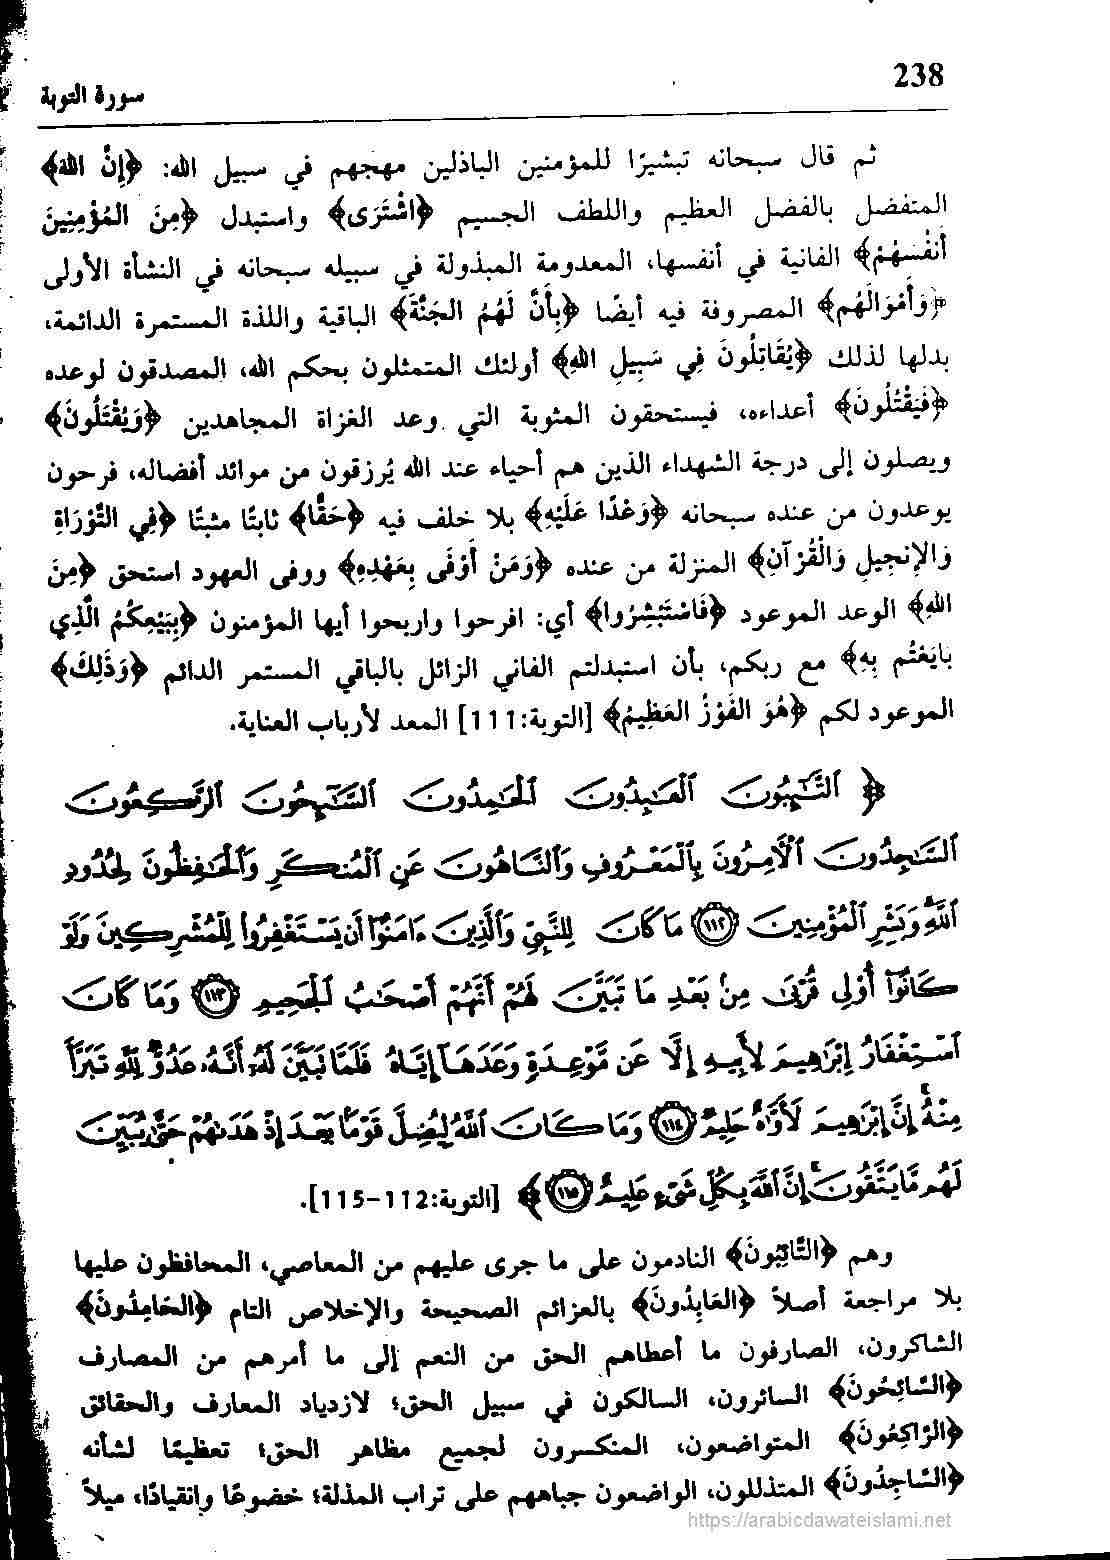 238
سورة التوبة
ثم قال سبحانه تبشيرًا للمؤمنين الباذلين مهجهم في سبيل الله: ﴿إِنَّ اللهَ﴾
المتفضل بالفضل العظيم واللطف الجسيم ﴿اشْتَرَى﴾ واستبدل ﴿مِنَ المُؤْمِنِينَ
أَنفُسَهُمْ﴾ الفانية في أنفسها، المعدومة المبذولة في سبيله سبحانه في النشأة الأولى
﴿وَأَمْوَالَهُم﴾ المصروفة فيه أيضًا ﴿بِأَنَّ لَهُمُ الجَنَّةَ﴾ الباقية واللذة المستمرة الدائمة،
بدلها لذلك ﴿يُقَاتِلُونَ فِي سَبِيلِ اللهِ﴾ أولئك المتمثلون بحكم الله، المصدقون لوعده
﴿فَيَقْتُلُونَ﴾ أعداءه، فيستحقون المثوبة التي وعد الغزاة المجاهدين ﴿وَيُقْتَلُونَ﴾
ويصلون إلى درجة الشهداء الذين هم أحياء عند الله يُرزقون من موائد أفضاله، فرحون
يوعدون من عنده سبحانه ﴿وَعْدًا عَلَيْهِ﴾ بلا خلف فيه ﴿حَقًّا﴾ ثابتًا مثبتًا ﴿فِي التَّوْرَاةِ
وَالإِنجِيلِ وَالْقُرْآنِ﴾ المنزلة من عنده ﴿وَمَنْ أَوْفَى بِعَهْدِهِ﴾ ووفى العهود استحق ﴿مِنَ
اللهِ﴾ الوعد الموعود ﴿فَاسْتَبْشِرُوا﴾ أي: افرحوا واربحوا أيها المؤمنون ﴿بِبَيْعِكُمُ الَّذِي
بَايَعْتُم بِهِ﴾ مع ربكم، بأن استبدلتم الفاني الزائل بالباقي المستمر الدائم ﴿وَذَلِكَ﴾
الموعود لكم ﴿هُوَ الفَوْزُ العَظِيمُ﴾ [التوبة:111] المعد لأرباب العناية.
﴿ ٱلتَّٰٓئِبُونَ ٱلْعَٰبِدُونَ ٱلْحَٰمِدُونَ ٱلسَّٰٓئِحُونَ ٱلرَّٰكِعُونَ
ٱلسَّٰجِدُونَ ٱلْءَامِرُونَ بِٱلْمَعْرُوفِ وَٱلنَّاهُونَ عَنِ ٱلْمُنكَرِ وَٱلْحَٰفِظُونَ لِحُدُودِ
ٱللَّهِ ۗ وَبَشِّرِ ٱلْمُؤْمِنِينَ ١١٢ مَا كَانَ لِلنَّبِيِّ وَٱلَّذِينَ ءَامَنُوٓا۟ أَن يَسْتَغْفِرُوا۟ لِلْمُشْرِكِينَ وَلَوْ
كَانُوٓا۟ أُو۟لِى قُرْبَىٰ مِنۢ بَعْدِ مَا تَبَيَّنَ لَهُمْ أَنَّهُمْ أَصْحَٰبُ ٱلْجَحِيمِ ١١٣ وَمَا كَانَ
ٱسْتِغْفَارُ إِبْرَٰهِيمَ لِأَبِيهِ إِلَّا عَن مَّوْعِدَةٍ وَعَدَهَآ إِيَّاهُ فَلَمَّا تَبَيَّنَ لَهُۥٓ أَنَّهُۥ عَدُوٌّ لِّلَّهِ تَبَرَّأَ
مِنْهُ ۚ إِنَّ إِبْرَٰهِيمَ لَأَوَّٰهٌ حَلِيمٌ ١١٤ وَمَا كَانَ ٱللَّهُ لِيُضِلَّ قَوْمًۢا بَعْدَ إِذْ هَدَىٰهُمْ حَتَّىٰ يُبَيِّنَ
لَهُم مَّا يَتَّقُونَ ۚ إِنَّ ٱللَّهَ بِكُلِّ شَىْءٍ عَلِيمٌ ١١٥ ﴾ [التوبة:112-115].
وهم ﴿التَّائِبُونَ﴾ النادمون على ما جرى عليهم من المعاصي، المحافظون عليها
بلا مراجعة أصلاً ﴿العَابِدُونَ﴾ بالعزائم الصحيحة والإخلاص التام ﴿الحَامِدُونَ﴾
الشاكرون، الصارفون ما أعطاهم الحق من النعم إلى ما أمرهم من المصارف
﴿السَّائِحُونَ﴾ السائرون، السالكون في سبيل الحق؛ لازدياد المعارف والحقائق
﴿الرَّاكِعُونَ﴾ المتواضعون، المنكسرون لجميع مظاهر الحق؛ تعظيمًا لشأنه
﴿السَّاجِدُونَ﴾ المتذللون، الواضعون جباههم على تراب المذلة؛ خضوعًا وانقيادًا، ميلاً
https://arabicdawateislami.net